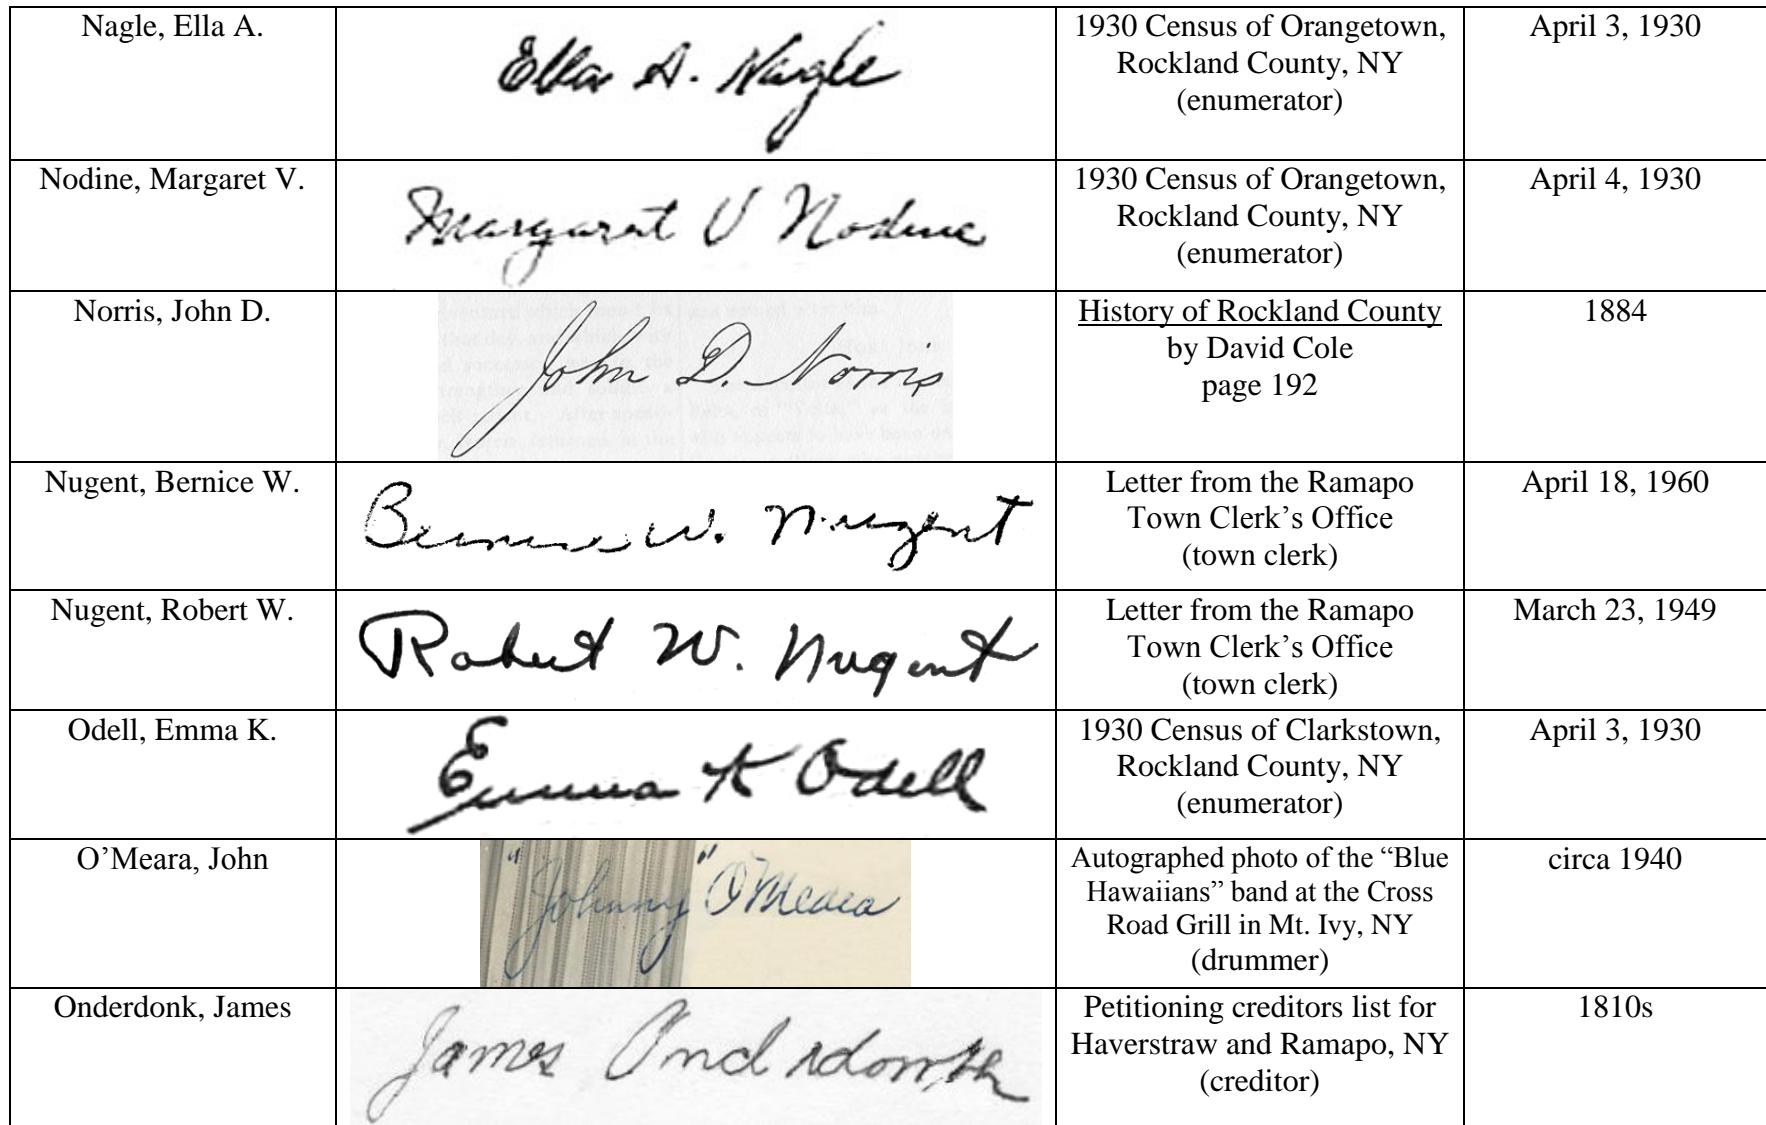 Nagle, Ella A.
Ella A. Nagle
1930 Census of Orangetown,
Rockland County, NY
(enumerator)
April 3, 1930
Nodine, Margaret V.
Margaret V Nodine
1930 Census of Orangetown,
Rockland County, NY
(enumerator)
April 4, 1930
Norris, John D.
John D. Norris
History of Rockland County
by David Cole
page 192
1884
Nugent, Bernice W.
Bernice W. Nugent
Letter from the Ramapo
Town Clerk’s Office
(town clerk)
April 18, 1960
Nugent, Robert W.
Robert W. Nugent
Letter from the Ramapo
Town Clerk’s Office
(town clerk)
March 23, 1949
Odell, Emma K.
Emma K Odell
1930 Census of Clarkstown,
Rockland County, NY
(enumerator)
April 3, 1930
O’Meara, John
"Johnny" O'Meara
Autographed photo of the “Blue
Hawaiians” band at the Cross
Road Grill in Mt. Ivy, NY
(drummer)
circa 1940
Onderdonk, James
James Onderdonk
Petitioning creditors list for
Haverstraw and Ramapo, NY
(creditor)
1810s